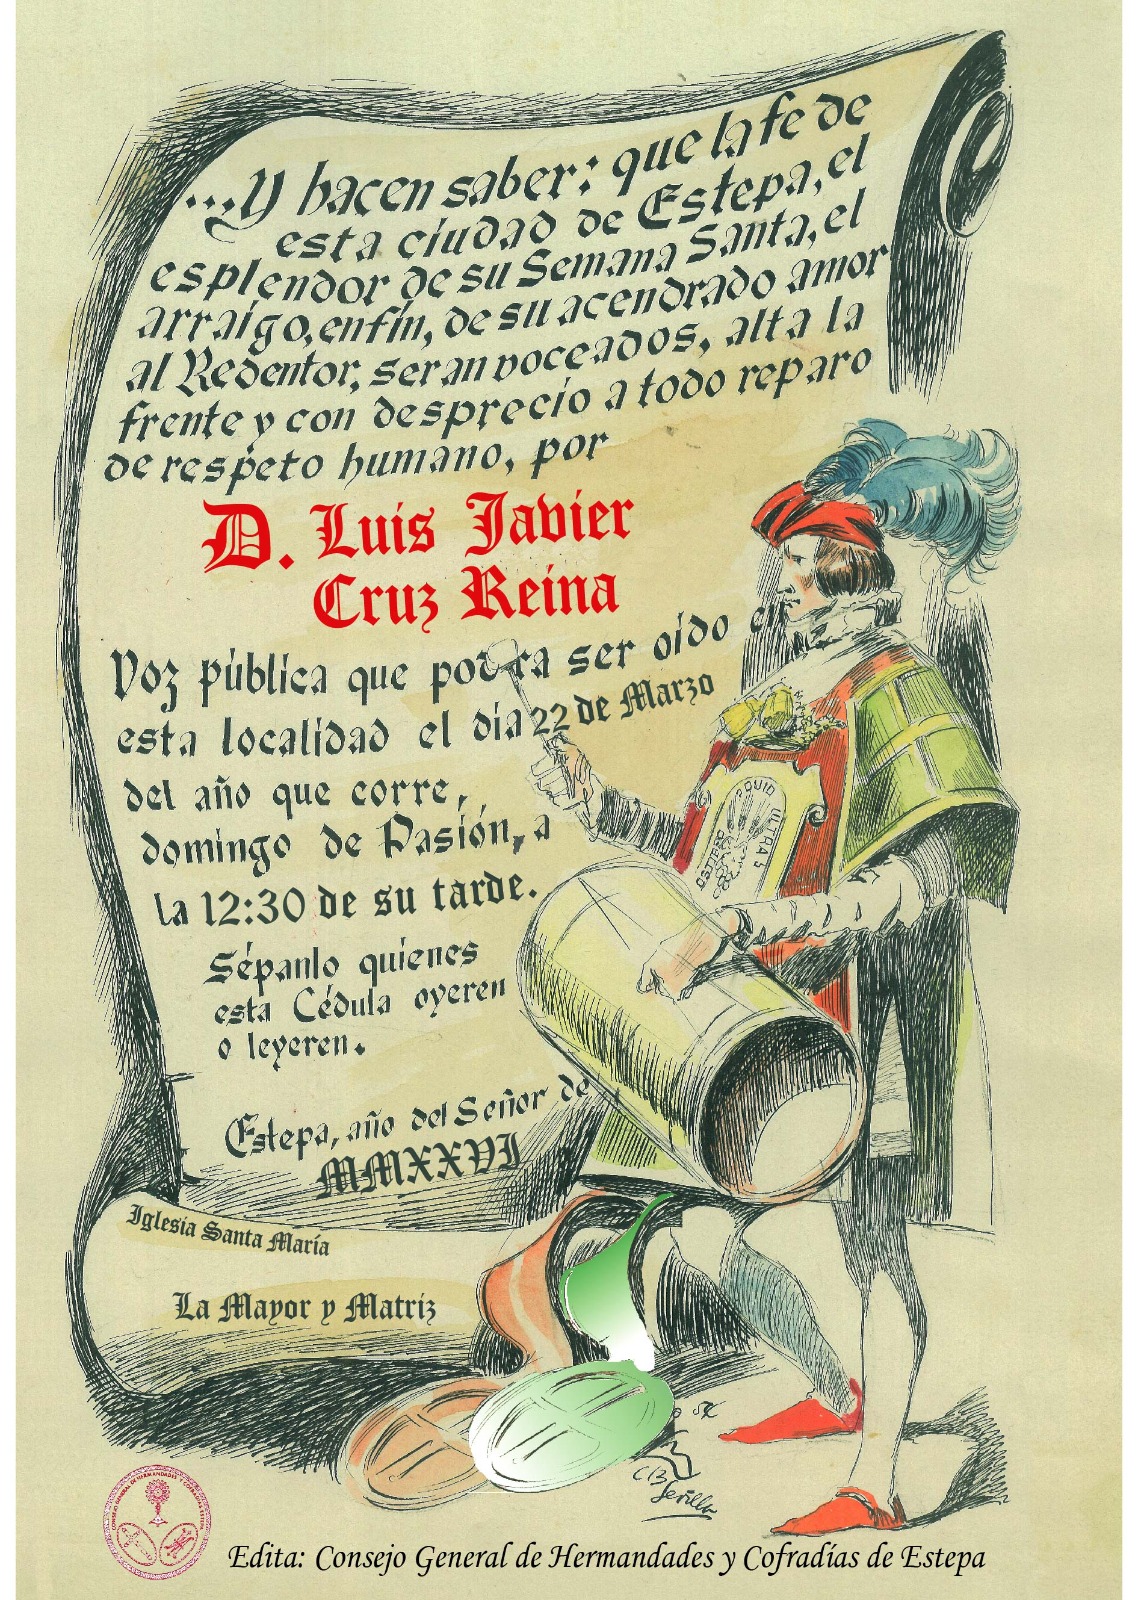 ...Y hacen saber: que la fe de
esta ciudad de Estepa, el
esplendor de su Semana Santa, el
arraigo, enfín, de su acendrado amor
al Redentor, seran voceados, alta la
frente y con desprecio a todo reparo
de respeto humano, por
D. Luis Javier
Cruz Reina
Voz pública que podra ser oido en
esta localidad el dia 22 de Marzo
del año que corre,
domingo de Pasión, a
la 12:30 de su tarde.
Sépanlo quienes
esta Cédula oyeren
o leyeren.
Estepa, año del Señor de
MMXXVI
Iglesia Santa María
La Mayor y Matriz
ULTRA
Sevilla
CONSEJO GENERAL DE HERMANDADES Y COFRADIAS ESTEPA
Edita: Consejo General de Hermandades y Cofradías de Estepa